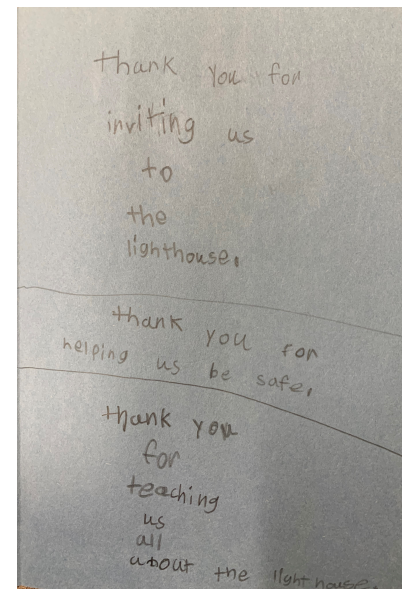 thank you for
inviting us
to
the
lighthouse.
thank you for
helping us be safe.
thank you
for
teaching
us
all
about the lighthouse.